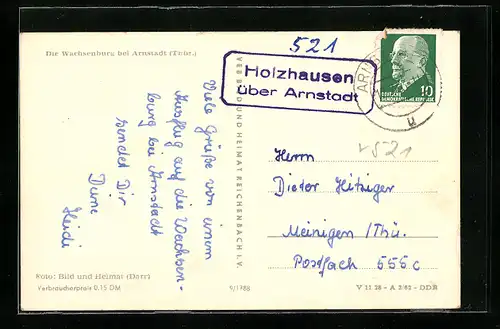 521
Die Wachsenburg bei Arnstadt (Thür.)
Holzhausen
über Arnstadt
ARNS
10
DEUTSCHE
DEMOKRATISCHE REPUBLIK
u
v 521
Viele Grüße von einem
Ausflug auf die Wachsen-
burg bei Arnstadt
sendet Dir
Deine
Heidi
VEB BILD UND HEIMAT REICHENBACH I. V.
Herrn
Dieter Hitziger
Meinigen /Thü.
Postfach 555c
Foto: Bild und Heimat (Darr)
Verbraucherpreis 0,15 DM
9/1788
V 11 28 - A 2/62 - DDR